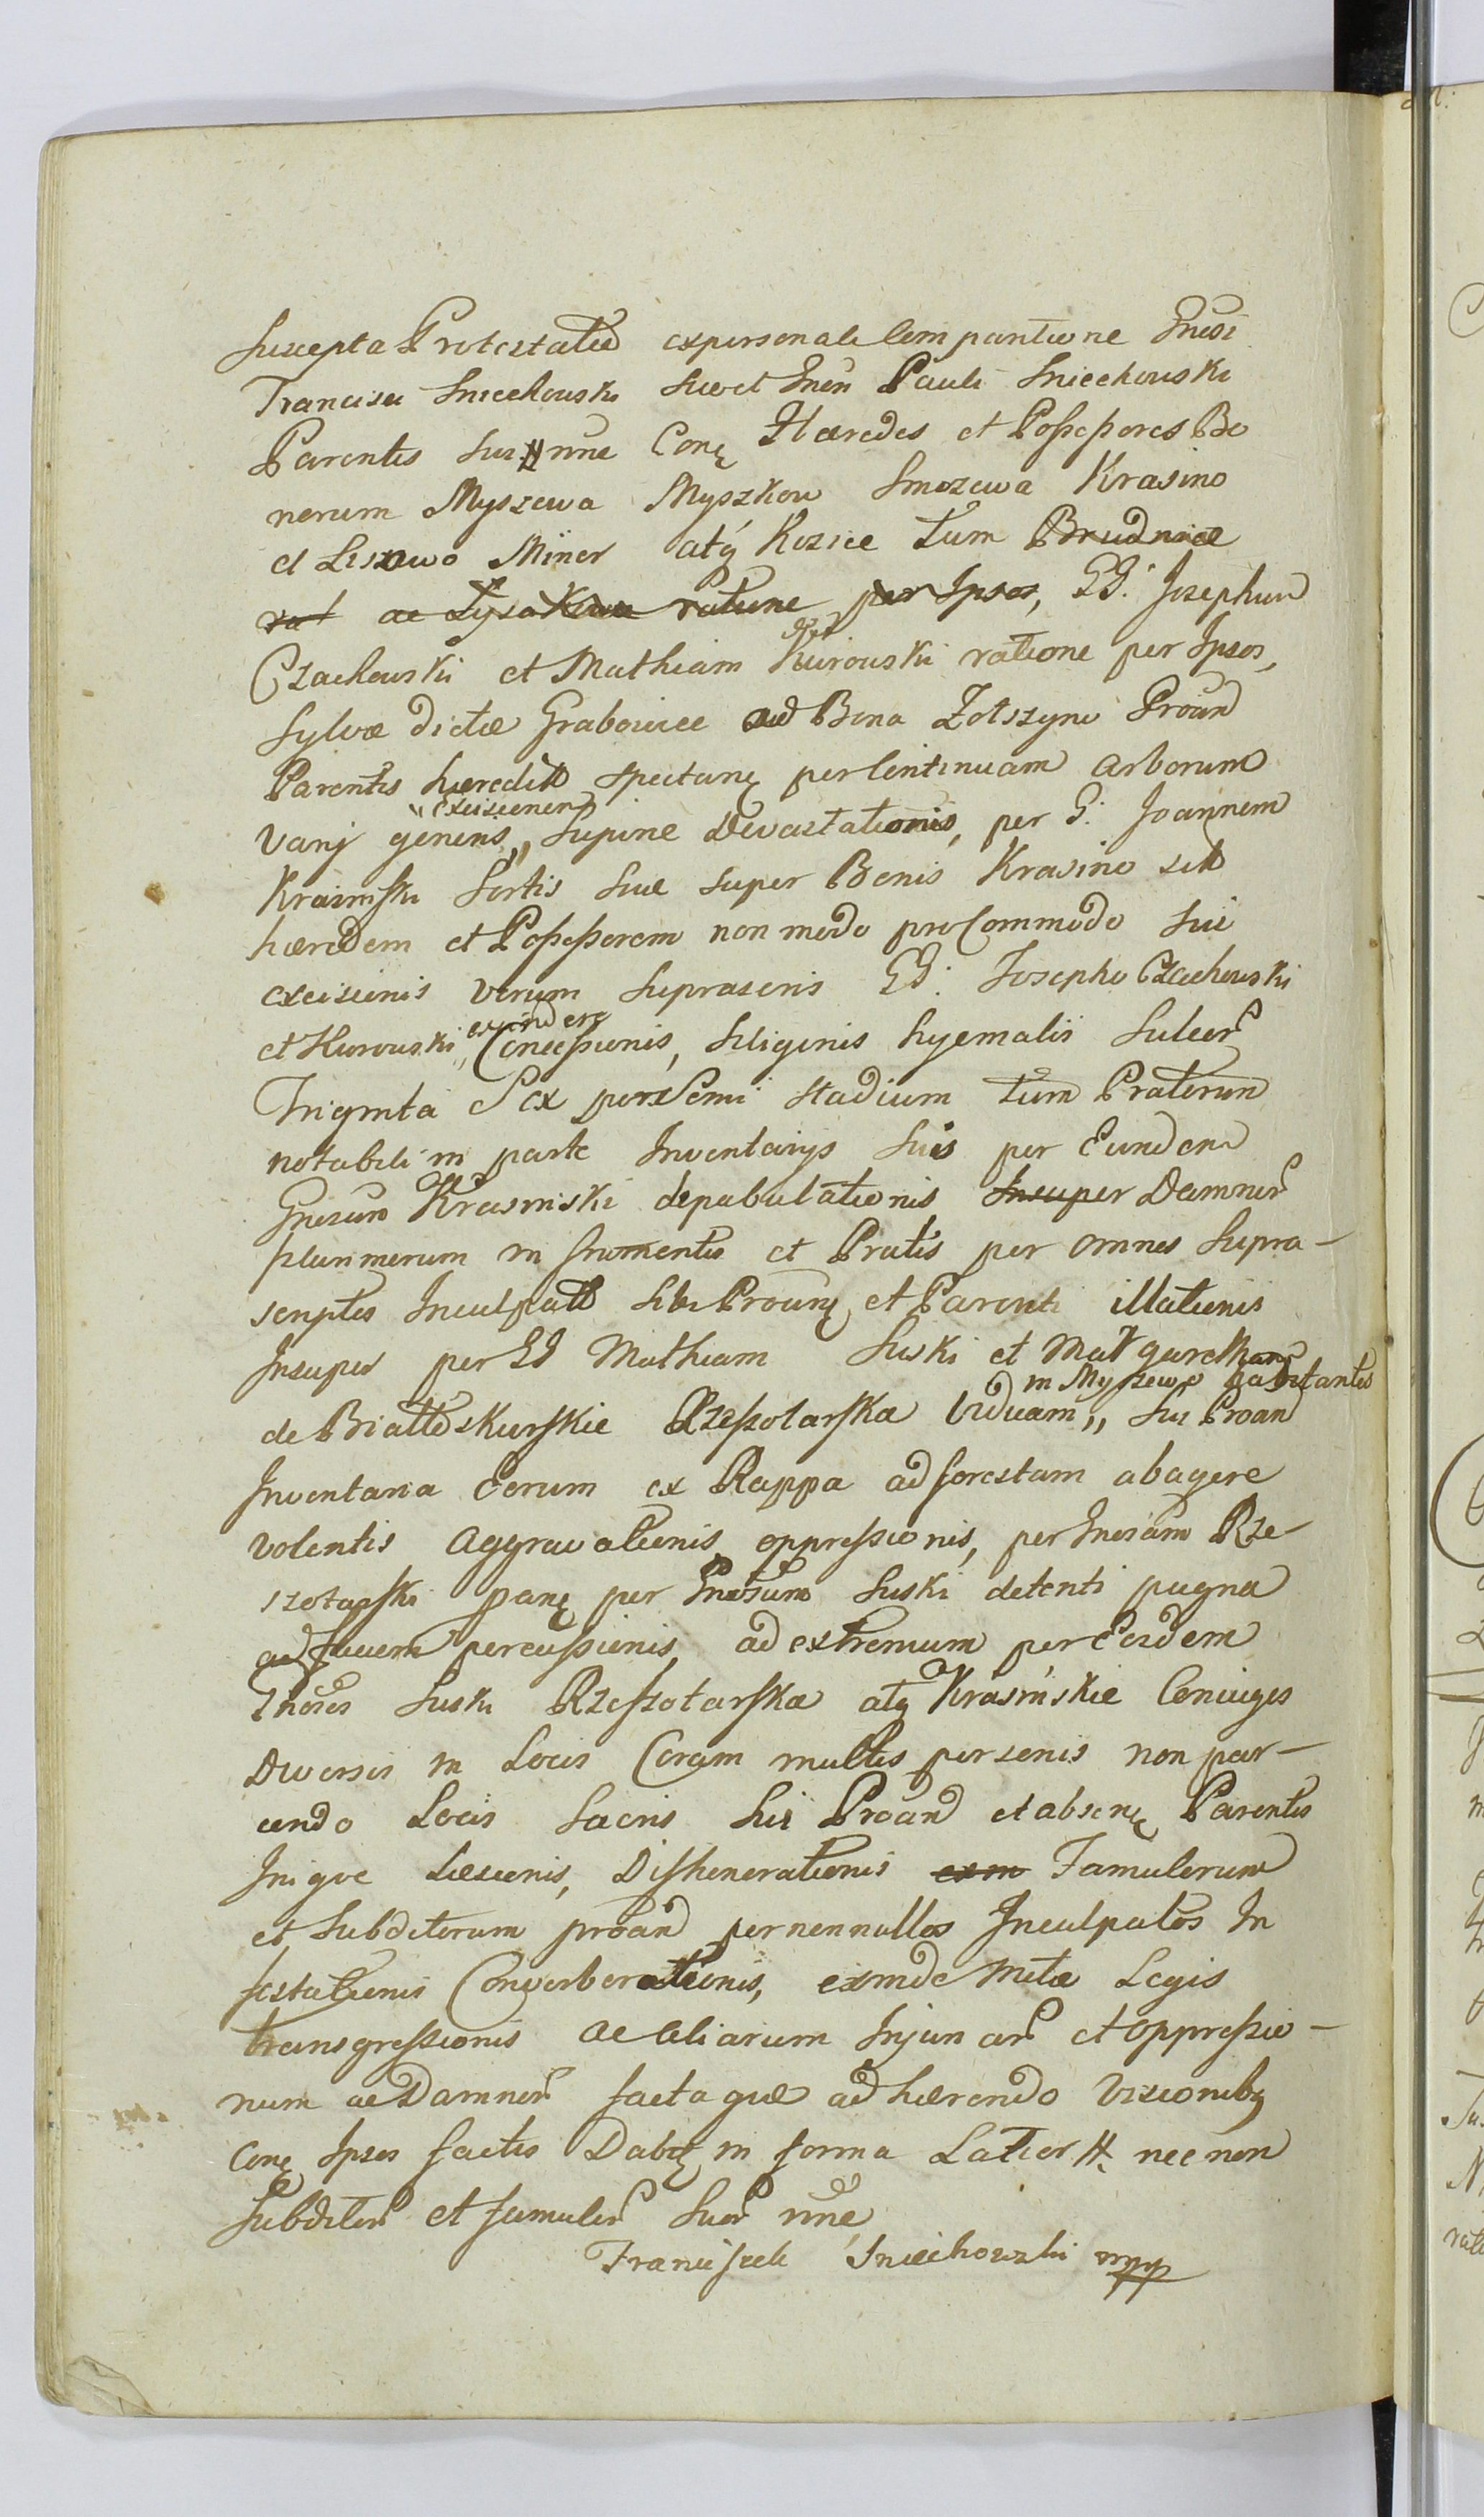 Suscepta Protestatio ex personali Comparitione Gnesi
Francisci Sniechowski Suo et Gnen Pauli Sniechowski
Parentis Sui nne Cong Hæredes et Possessores Bo
norum Myszewa Myszkow Smozewa Krasino
et Liszewo Minor atq Kozice tum Brudnice
rat ac Łysakowa ratione per Ipsos, GG: Josephum
Czachowski et Mathiam Kurowski ratione per Ipsos,
Sylvæ dictæ Grabowiec ad Bona Żołszyn Proan
Parentis hæredit spectang per Continuam arborum
varij generis „ Supine Devastationis, per G: Joannem
"excisionem
Krasinski Sortis Suæ super Bonis Krasino sit
hæredem et Possessorem non modo pro Commodo sui
excisionis verum suprascris GG: Josepho Czachowski
et Kurowski „ Concessionis, Siliginis hyemalis Sulcor
excindere
Triginta Sex per Semi stadium tum Pratorum
notabili in parte Inventarys Suis per Eundem
Gnesum Krasinski depabulationis Insuper Damnor
plurimorum in frumentis et Pratis per omnes Supra-
scriptos Inculpatt sibi Proang et Parenti illationis
Insuper per GG Mathiam Suski et Margaretham
in Myszewo habitantes
de Białłoskurskie Rzeszotarska Viduam „ Sui Proan
Inventaria Eorum ex Rappa ad forestam abagere
volentis Aggravationis oppressionis, per Gnesam Rze-
szotarski pang per Gnesum Suski detenti pugna
ad faciem percussionis, ad extremum per Eosdem
Gnosos Suski Rzeszotarska atq Krasinskie Coniuges
Diversis in Locis Coram multis personis non par-
cendo Locis Sacris Sui Proan et abseng Parentis
Iniqve Læsionis, Dishonorationis exin Famulorum
et Subditorum proan per nonnullos Inculpatos In
festationis Converberationis, exinde metæ Legis
transgressionis ac aliarum Injuriar et oppressio-
num ac Damnor facta quæ adhærendo Visionibg
Cong Ipsos factis Dabg in forma Latior H. nec non
Subditor et famulor Suor nne
Franciszek Sniechowski mpp